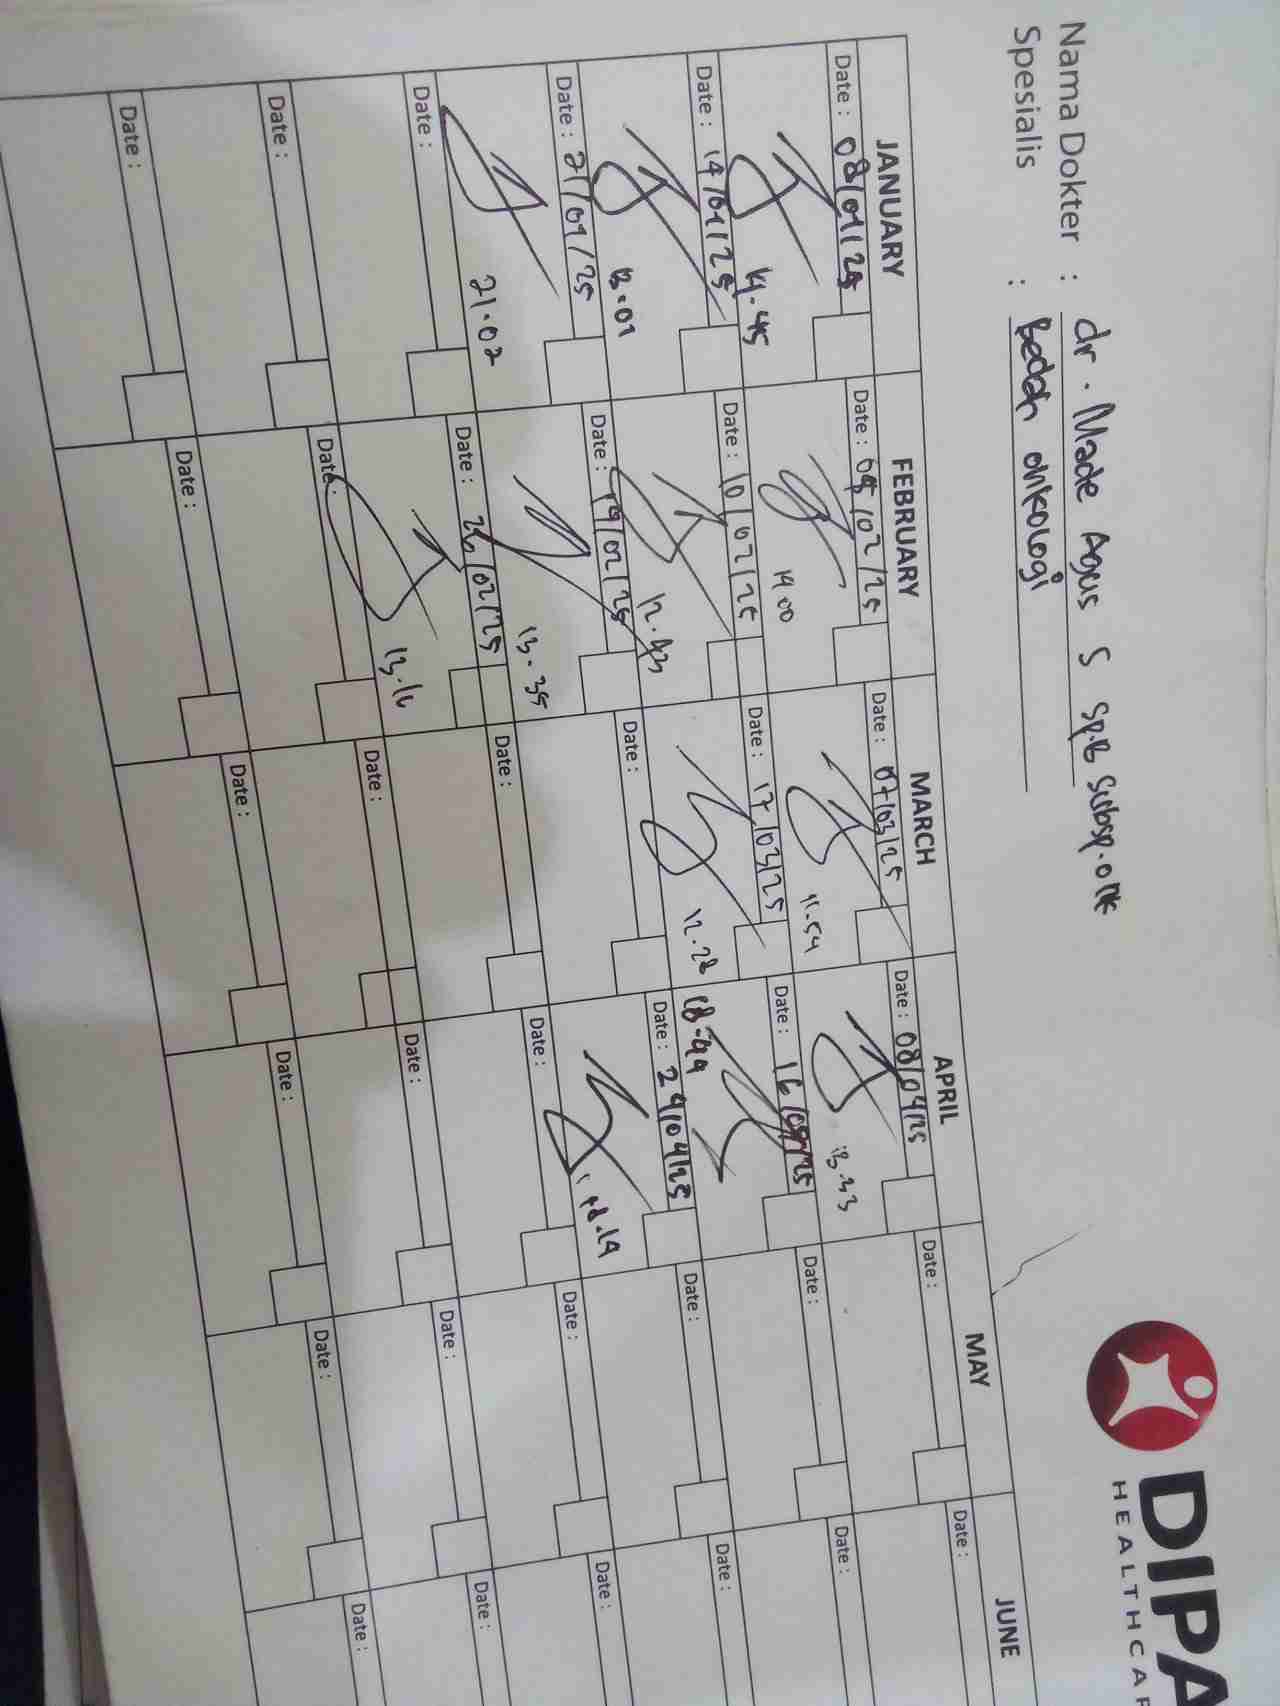 DIPA
HEALTHCAR
Nama Dokter : dr. Made Agus S Sp.B Subsp.onk
Spesialis : Bedah onkologi
JANUARY FEBRUARY MARCH APRIL MAY JUNE
Date : 08/01/25 Date : /02/25 Date : 07/03/25 Date : 08/04/25 Date : Date :
14.45 14.00 11.54 13.33
Date : 14/01/25 Date : 10/02/25 Date : 17/03/25 Date : 16/04/25 Date : Date :
13.01 12.43 12.28 18.44
Date : 21/01/25 Date : 19/02/25 Date : Date : 24/04/25 Date : Date :
21.02 13.35 18.19
Date : Date : /02/25 Date : Date : Date : Date :
13.16
Date : Date : Date : Date : Date : Date :
Date : Date : Date : Date : Date : Date :